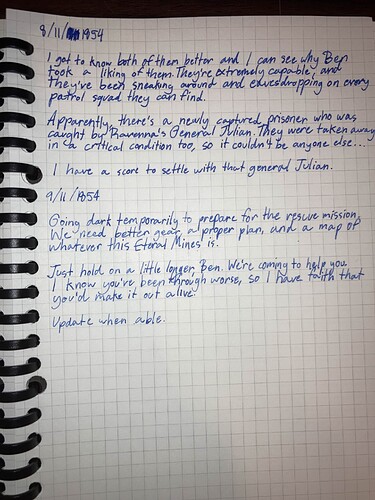 8/11/1954
I got to know both of them better and I can see why Ben
took a liking of them. They're extremely capable, and
they've been sneaking around and eavesdropping on every
patrol squad they can find.
Apparently, there's a newly captured prisoner who was
caught by Ravenna's General Julian. They were taken away
in a critical condition too, so it couldn't be anyone else...
I have a score to settle with that general Julian.
9/11/1954
Going dark temporarily to prepare for the rescue mission.
We need better gear, a proper plan, and a map of
whatever this 'Etoral Mines' is.
Just hold on a little longer, Ben. We're coming to help you.
I know you've been through worse, so I have faith that
you'd make it out alive.
Update when able.